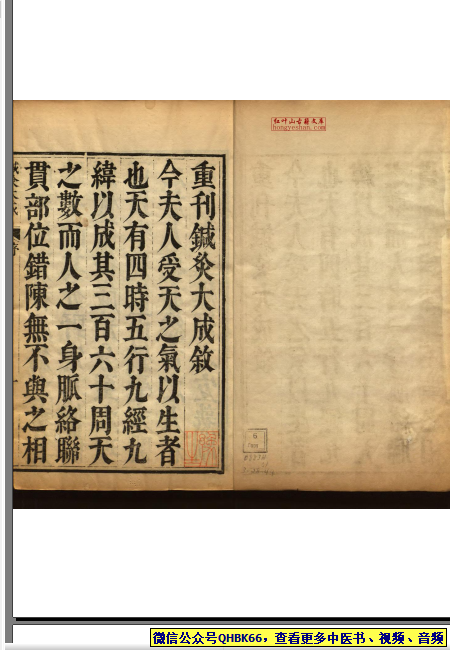 红叶山古籍文库
hongyeshan.com
重刊鍼灸大成敘
今夫人受天之氣以生者
也天有四時五行九經九
緯以成其三百六十周天
之數而人之一身脈絡聯
貫部位錯陳無不與之相
序
微信公众号QHBK66，查看更多中医书、视频、音频